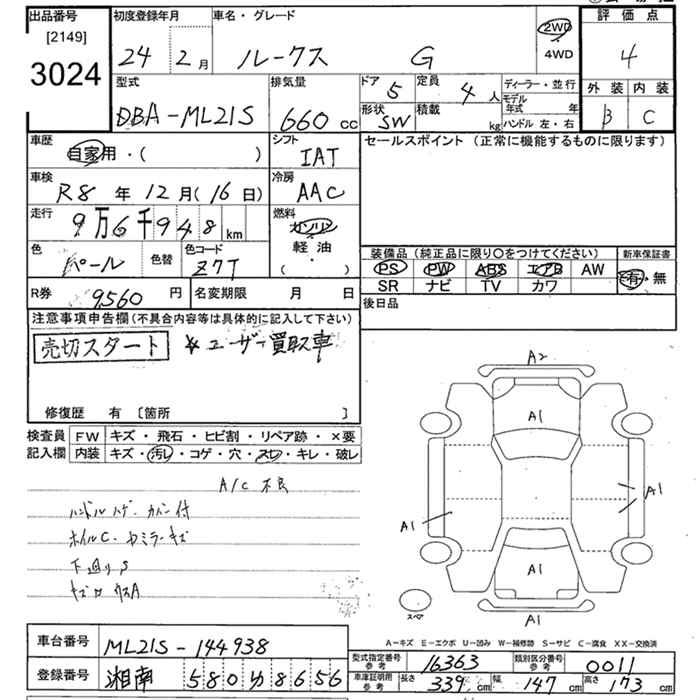 出品番号
[2149]
3024
初度登録年月
24 2月
車名・グレード
ルークス G
2WD
4WD
評価点
4
外装 内装
B C
型式
DBA-ML21S
排気量
660 cc
ドア 5
定員 4人
形状 SW
積載 kg
ディーラー・並行
モデル年式 年
ハンドル 左・右
車歴
自家用・( )
シフト
IAT
セールスポイント (正常に機能するものに限ります)
車検
R8年12月(16日)
冷房
AAC
走行
9万6千948km
燃料
ガソリン
軽油
( )
色
パール
色替
色コード
Z7T
装備品(純正品に限り○をつけてください)
PS PW ABS エアB AW
SR ナビ TV カワ
新車保証書
有・無
R券 9560円
名変期限 月 日
後日品
注意事項申告欄(不具合内容等は具体的に記入して下さい)
売切スタート ※ユーザー買取車
修復歴 有 [箇所 ]
検査員記入欄
FW キズ・飛石・ヒビ割・リペア跡・×要
内装 キズ・汚レ・コゲ・穴・スレ・キレ・破レ
A/C 不良
ハンドルハゲ・カバー付
ホイルC・
下廻りS
A2
A1
A1
A1
A1
A1
スペア
A1
A-キズ E-エクボ U-凹み W-補修跡 S-サビ C-腐食 XX-交換済
車台番号 ML21S-144938
登録番号 湘南 580 8656
型式指定番号 参考 16363
類別区分番号 参考 0011
車庫証明用 参考 長さ 339cm 幅 147cm 高さ 173cm